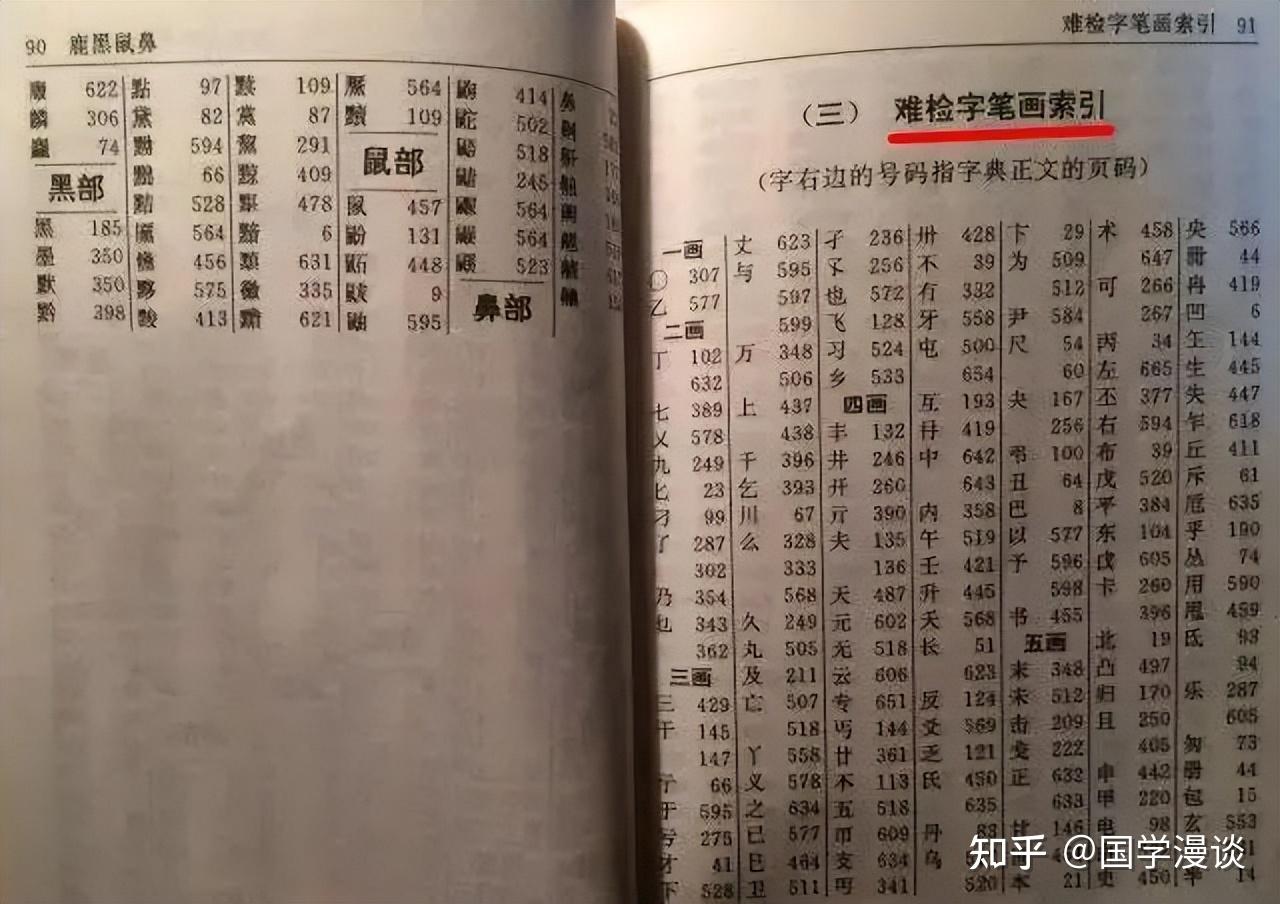 90 鹿黑鼠鼻
622
麟 306
74
黑部
黑 185
墨 350
默 350
黔 398
點 97
黛 82
黝 594
66
黠 528
564
456
575
413
109
黨 87
黎 291
黥 409
478
黯 6
631
黴 335
621
564
109
鼠部
鼠 457
鼢 131
鼫 448
鼥 9
鼬 595
414
鼧 502
518
245
564
564
鼷 523
鼻部
难检字笔画索引 91
(三) 难检字笔画索引
(字右边的号码指字典正文的页码)
一画
307
乙 577
二画
丁 102
632
七 389
乂 578
九 249
匕 23
刁 99
了 287
302
乃 354
乜 343
362
三画
三 429
干 145
147
亍 66
于 595
亏 275
才 41
下 528
丈 623
与 595
597
599
万 348
506
上 437
438
千 396
乞 393
川 67
么 328
333
568
久 249
丸 505
及 211
亡 507
518
丫 558
义 578
之 634
已 577
巳 464
卫 511
孑 236
孓 256
也 572
飞 128
习 524
乡 533
四画
丰 132
井 246
开 260
亓 390
夫 135
136
天 487
元 602
无 518
云 606
专 651
丐 144
廿 361
不 113
五 518
帀 609
支 634
丏 341
卅 428
不 39
冇 332
牙 558
屯 500
654
互 193
冄 419
中 642
643
内 358
午 519
壬 421
升 445
夭 568
长 51
623
反 124
爻 569
乏 121
氏 450
635
丹 83
乌
520
卞 29
为 509
512
尹 584
尺 54
60
夬 167
256
弔 100
丑 64
巴 8
以 577
予 596
598
书 455
五画
末 348
未 512
击 209
戋 222
正 632
633
甘 146
本 21
术 458
647
可 266
267
丙 34
左 665
丕 377
右 594
布 39
戊 520
平 384
东 104
戉 605
卡 260
396
北 19
凸 497
归 170
且 250
405
申 442
甲 220
电 98
史 450
央 566
冊 44
冉 419
凹 6
144
生 445
失 447
乍 618
丘 411
斥 61
卮 635
乎 190
丛 74
用 590
甩 459
氐 93
94
乐 287
605
匆 73
册 44
包 15
玄 553
14
知乎 @国学漫谈